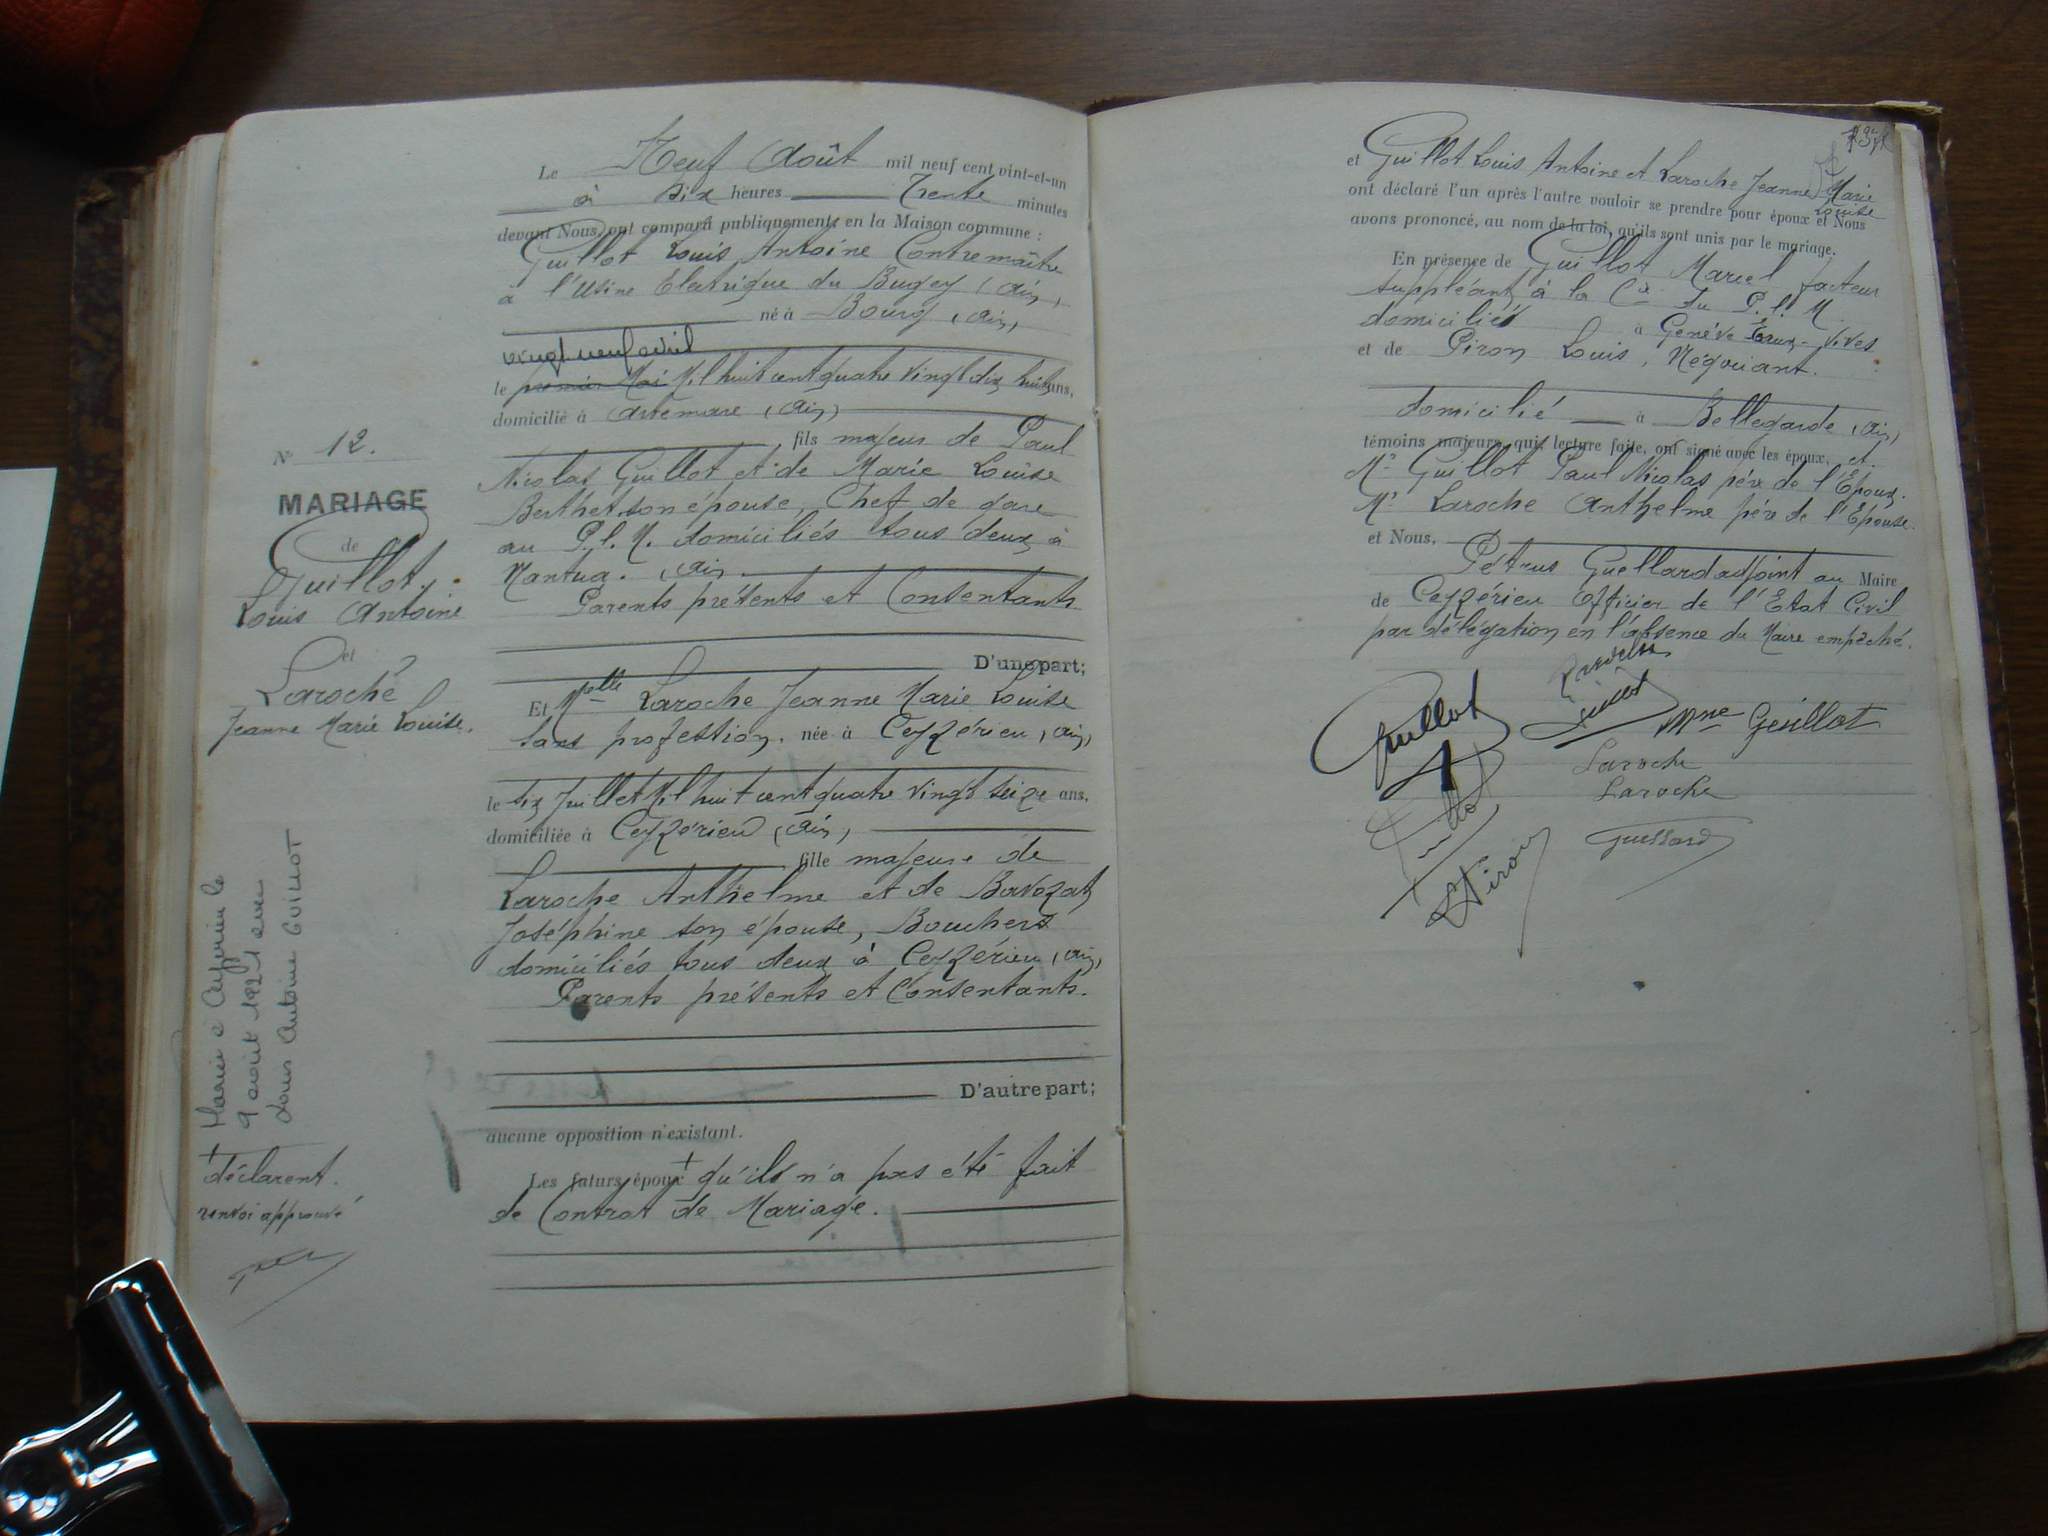 Le Neuf Août mil neuf cent vint-et-un
à dix heures Trente minutes
devant Nous, ont comparu publiquement en la Maison commune :
Guillot Louis Antoine Contremaître
à l'Usine Electrique du Bugey (Ain)
né à Bourg (Ain)
vingt neuf avril
le premier Mai Mil huit cent quatre vingt dix huit ans,
domicilié à Artemare (Ain)
fils majeur de Paul
Nicolas Guillot et de Marie Louise
Berthet son épouse, Chef de gare
au P.L.M. domiciliés tous deux à
Nantua. (Ain)
Parents présents et Consentants
D'une part;
Et Melle Laroche Jeanne Marie Louise
sans profession, née à Ceyzérieu (Ain)
le six Juillet Mil huit cent quatre vingt seize ans,
domiciliée à Ceyzérieu (Ain)
fille majeure de
Laroche Anthelme et de Bavozat
Joséphine son épouse, Bouchers
domiciliés tous deux à Ceyzérieu (Ain)
Parents présents et Consentants.
D'autre part;
aucune opposition n'existant.
Les futurs époux + qu'ils n'a pas été fait
de Contrat de Mariage.
N° 12.
MARIAGE
de
Guillot
Louis Antoine
et
Laroche
Jeanne Marie Louise.
Marié à Ceyzérieu le
9 août 1921 avec
Louis Antoine GUILLOT
+ déclarent.
renvoi approuvé
et Guillot Louis Antoine et Laroche Jeanne Marie
Louise
ont déclaré l'un après l'autre vouloir se prendre pour époux et Nous
avons prononcé, au nom de la loi, qu'ils sont unis par le mariage.
En présence de Guillot Marcel facteur
suppléant à la Cie du P.L.M.
domiciliés à Genève Eaux-Vives
et de Piron Louis, Négociant.
domicilié à Bellegarde (Ain)
témoins majeurs qui, lecture faite, ont signé avec les époux, et
Mr Guillot Paul Nicolas père de l'Epoux.
Mr Laroche Anthelme père de l'Epouse.
et Nous,
Pétrus Guellard adjoint au Maire
de Ceyzérieu Officier de l'Etat Civil
par délégation en l'absence du Maire empêché.
Guillot
Mme Guillot
Laroche
Laroche
Guillot
Piron
Guellard